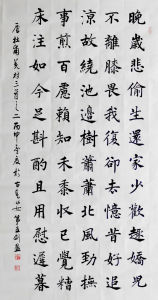 晚歲迫偷生還家少歡趣嬌兒
不離膝畏我復却去憶昔好追
涼故繞池邊樹蕭蕭北風勁撫
事煎百慮賴知禾黍收已覺糟
床注如今足斟酌且用慰遲暮
唐杜甫羌村三首之二丙申年夏於